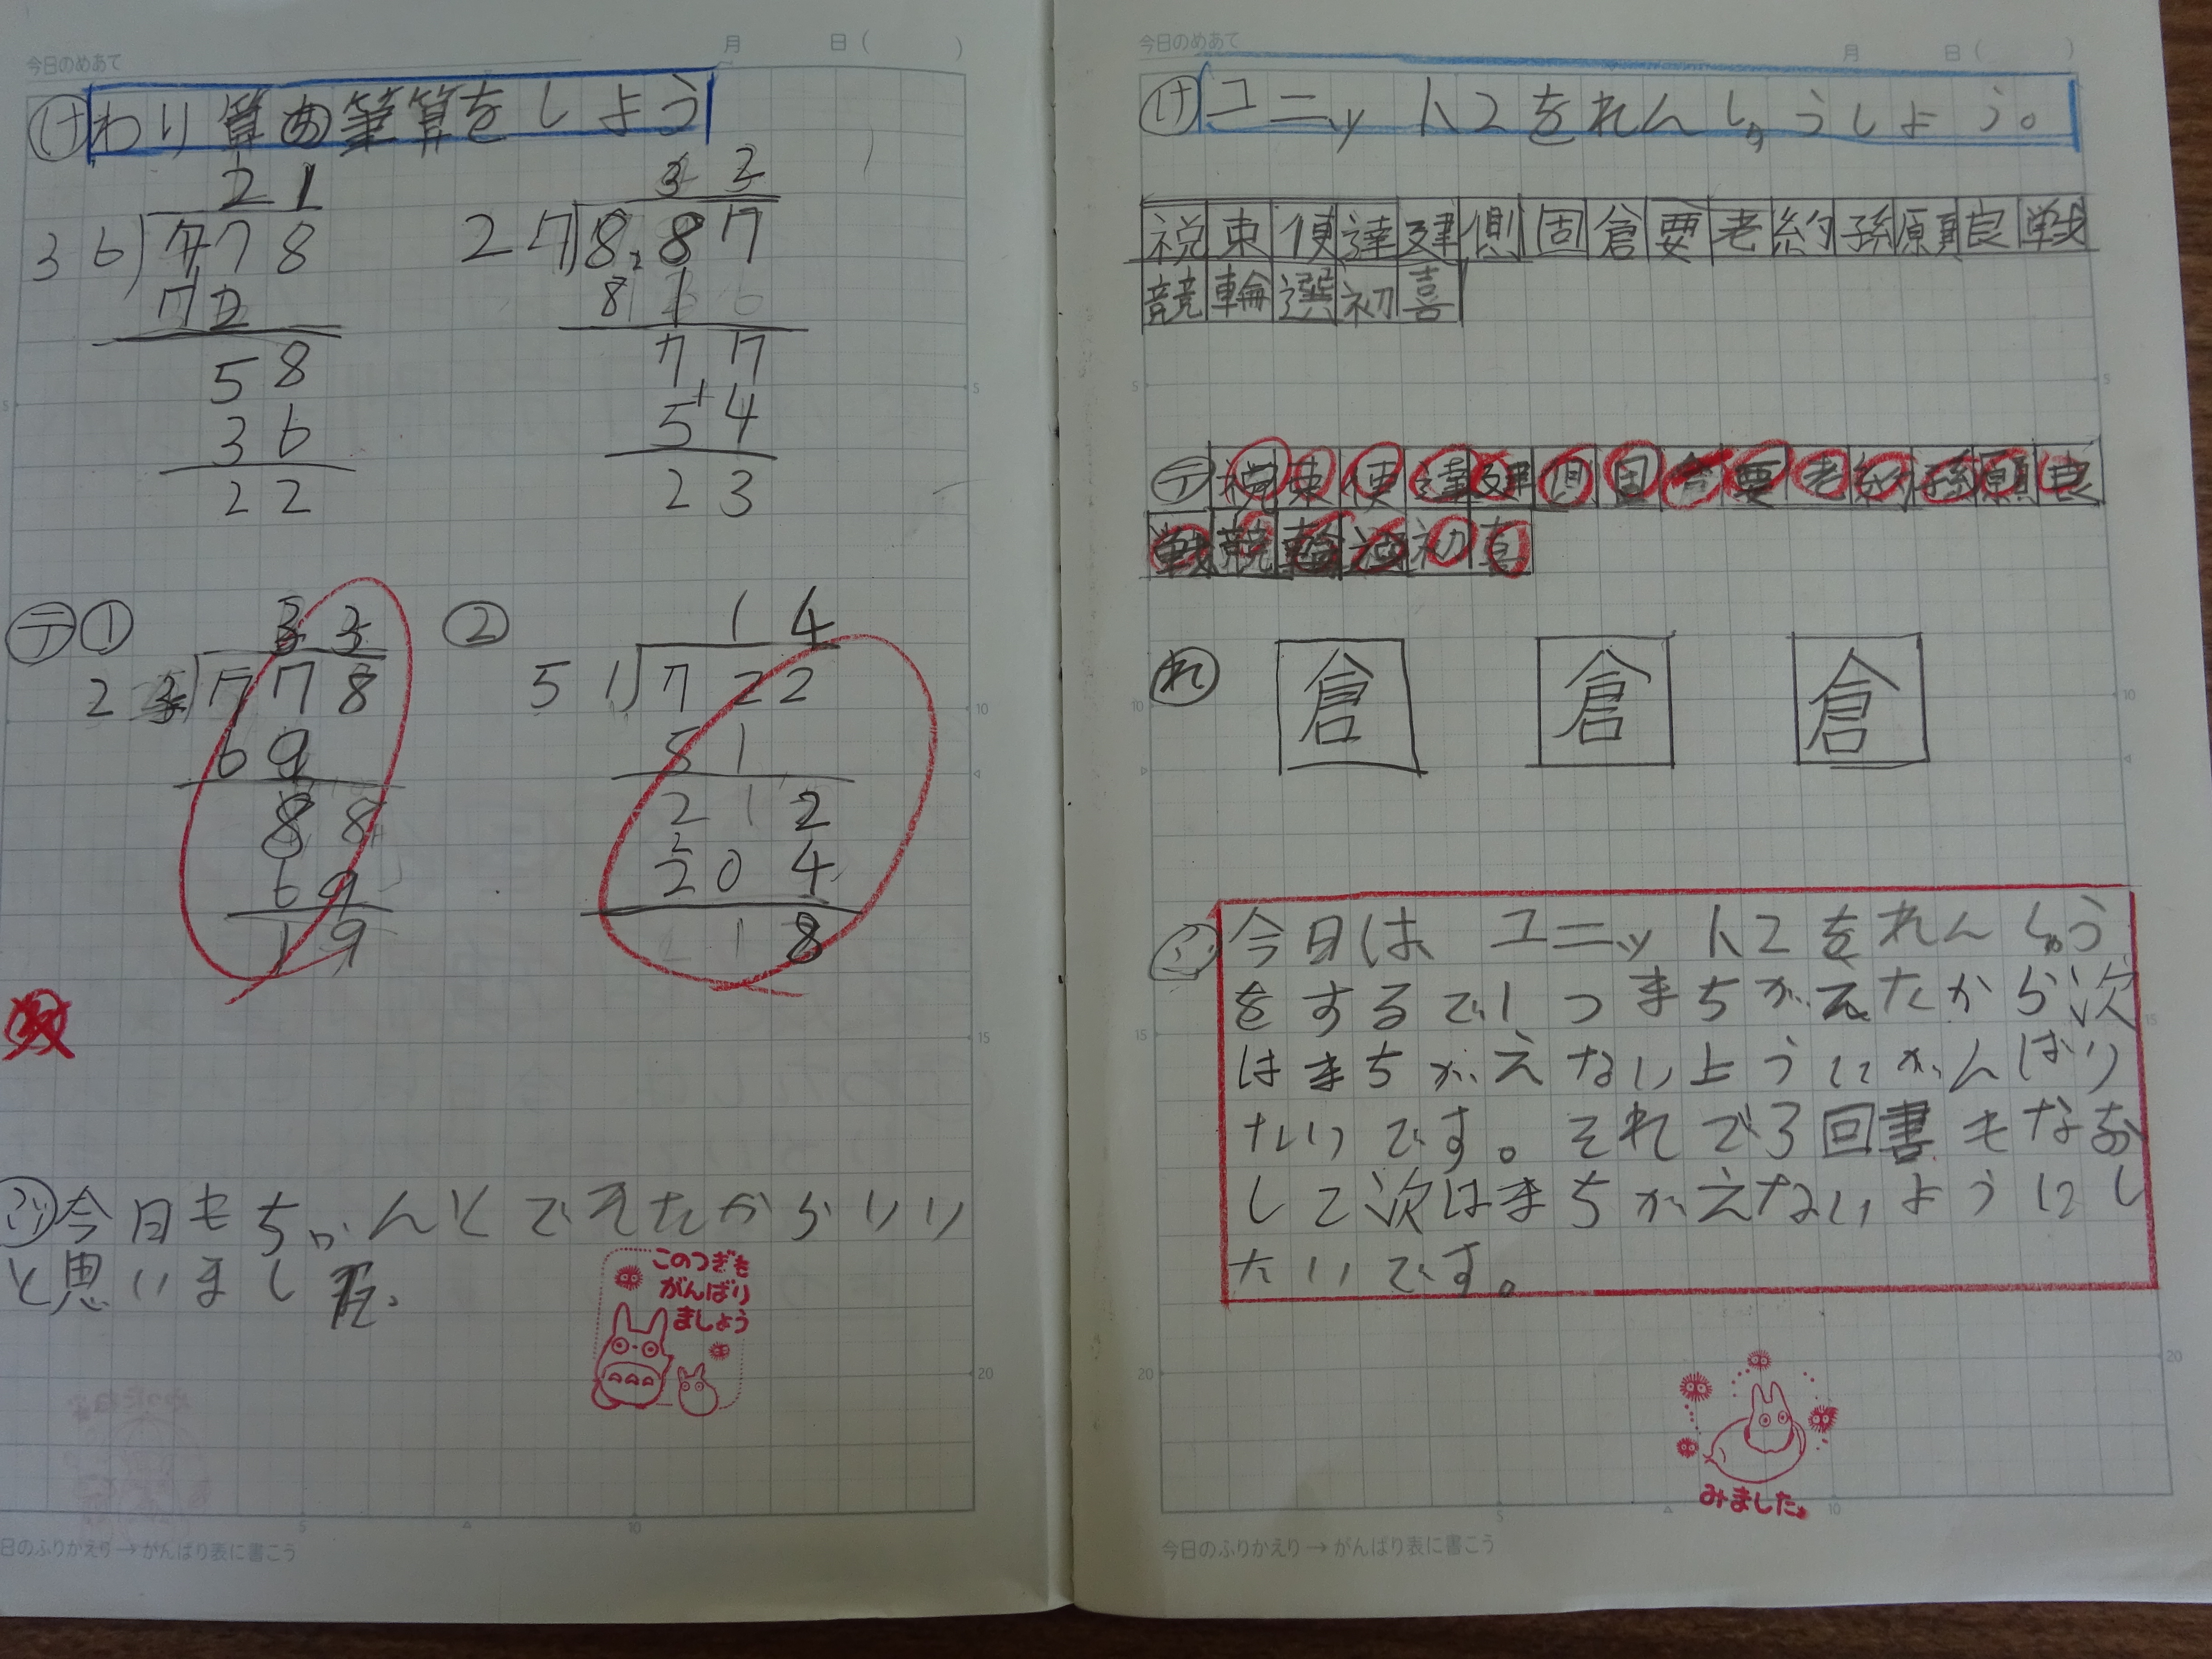 今日のめあて
月 日( )
け わり算の筆算をしよう
21
36)778
72
58
36
22
32
27)887
81
77
54
23
テ ① 33
23)778
69
88
69
19
② 14
51)722
51
212
204
18
ふ 今日もちゃんとできたからいい
と思いました。
このつぎも
がんばり
ましょう
5
10
15
20
5
10
日のふりかえり→がんばり表に書こう
今日のめあて
月 日( )
け ユニット2をれんしゅうしよう。
祝束便達建側固倉要老約孫願良戦
競輪選初喜
テ 祝束便達建側固倉要老約孫願良
戦競輪選初喜
れ 倉 倉 倉
ふ 今日は、ユニット2をれんしゅう
をするで1つまちがえたから次
はまちがえないようにがんばり
たいです。それで3回書もなお
して次はまちがえないようにし
たいです。
みました。
5
10
15
20
5
10
今日のふりかえり→がんばり表に書こう